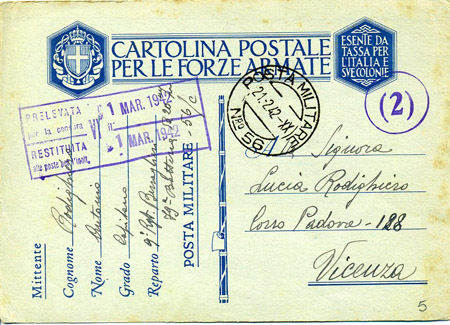 CARTOLINA POSTALE
PER LE FORZE ARMATE
ESENTE DA
TASSA PER
L'ITALIA E
SVE COLONIE
PRELEVATA
per la censura
RESTITUITA
alle poste per l'inolt.
VI
il:
1 MAR. 1942
1 MAR. 1942
POSTA MILITARE
21.2.42.XX
Nº 56
(2)
Mittente
Cognome Rodighiero
Nome Antonio
Grado Capitano
Reparto 9º Rgt
POSTA MILITARE 56/C
Signora
Lucia Rodighiero
Corso Padova - 128
Vicenza
5